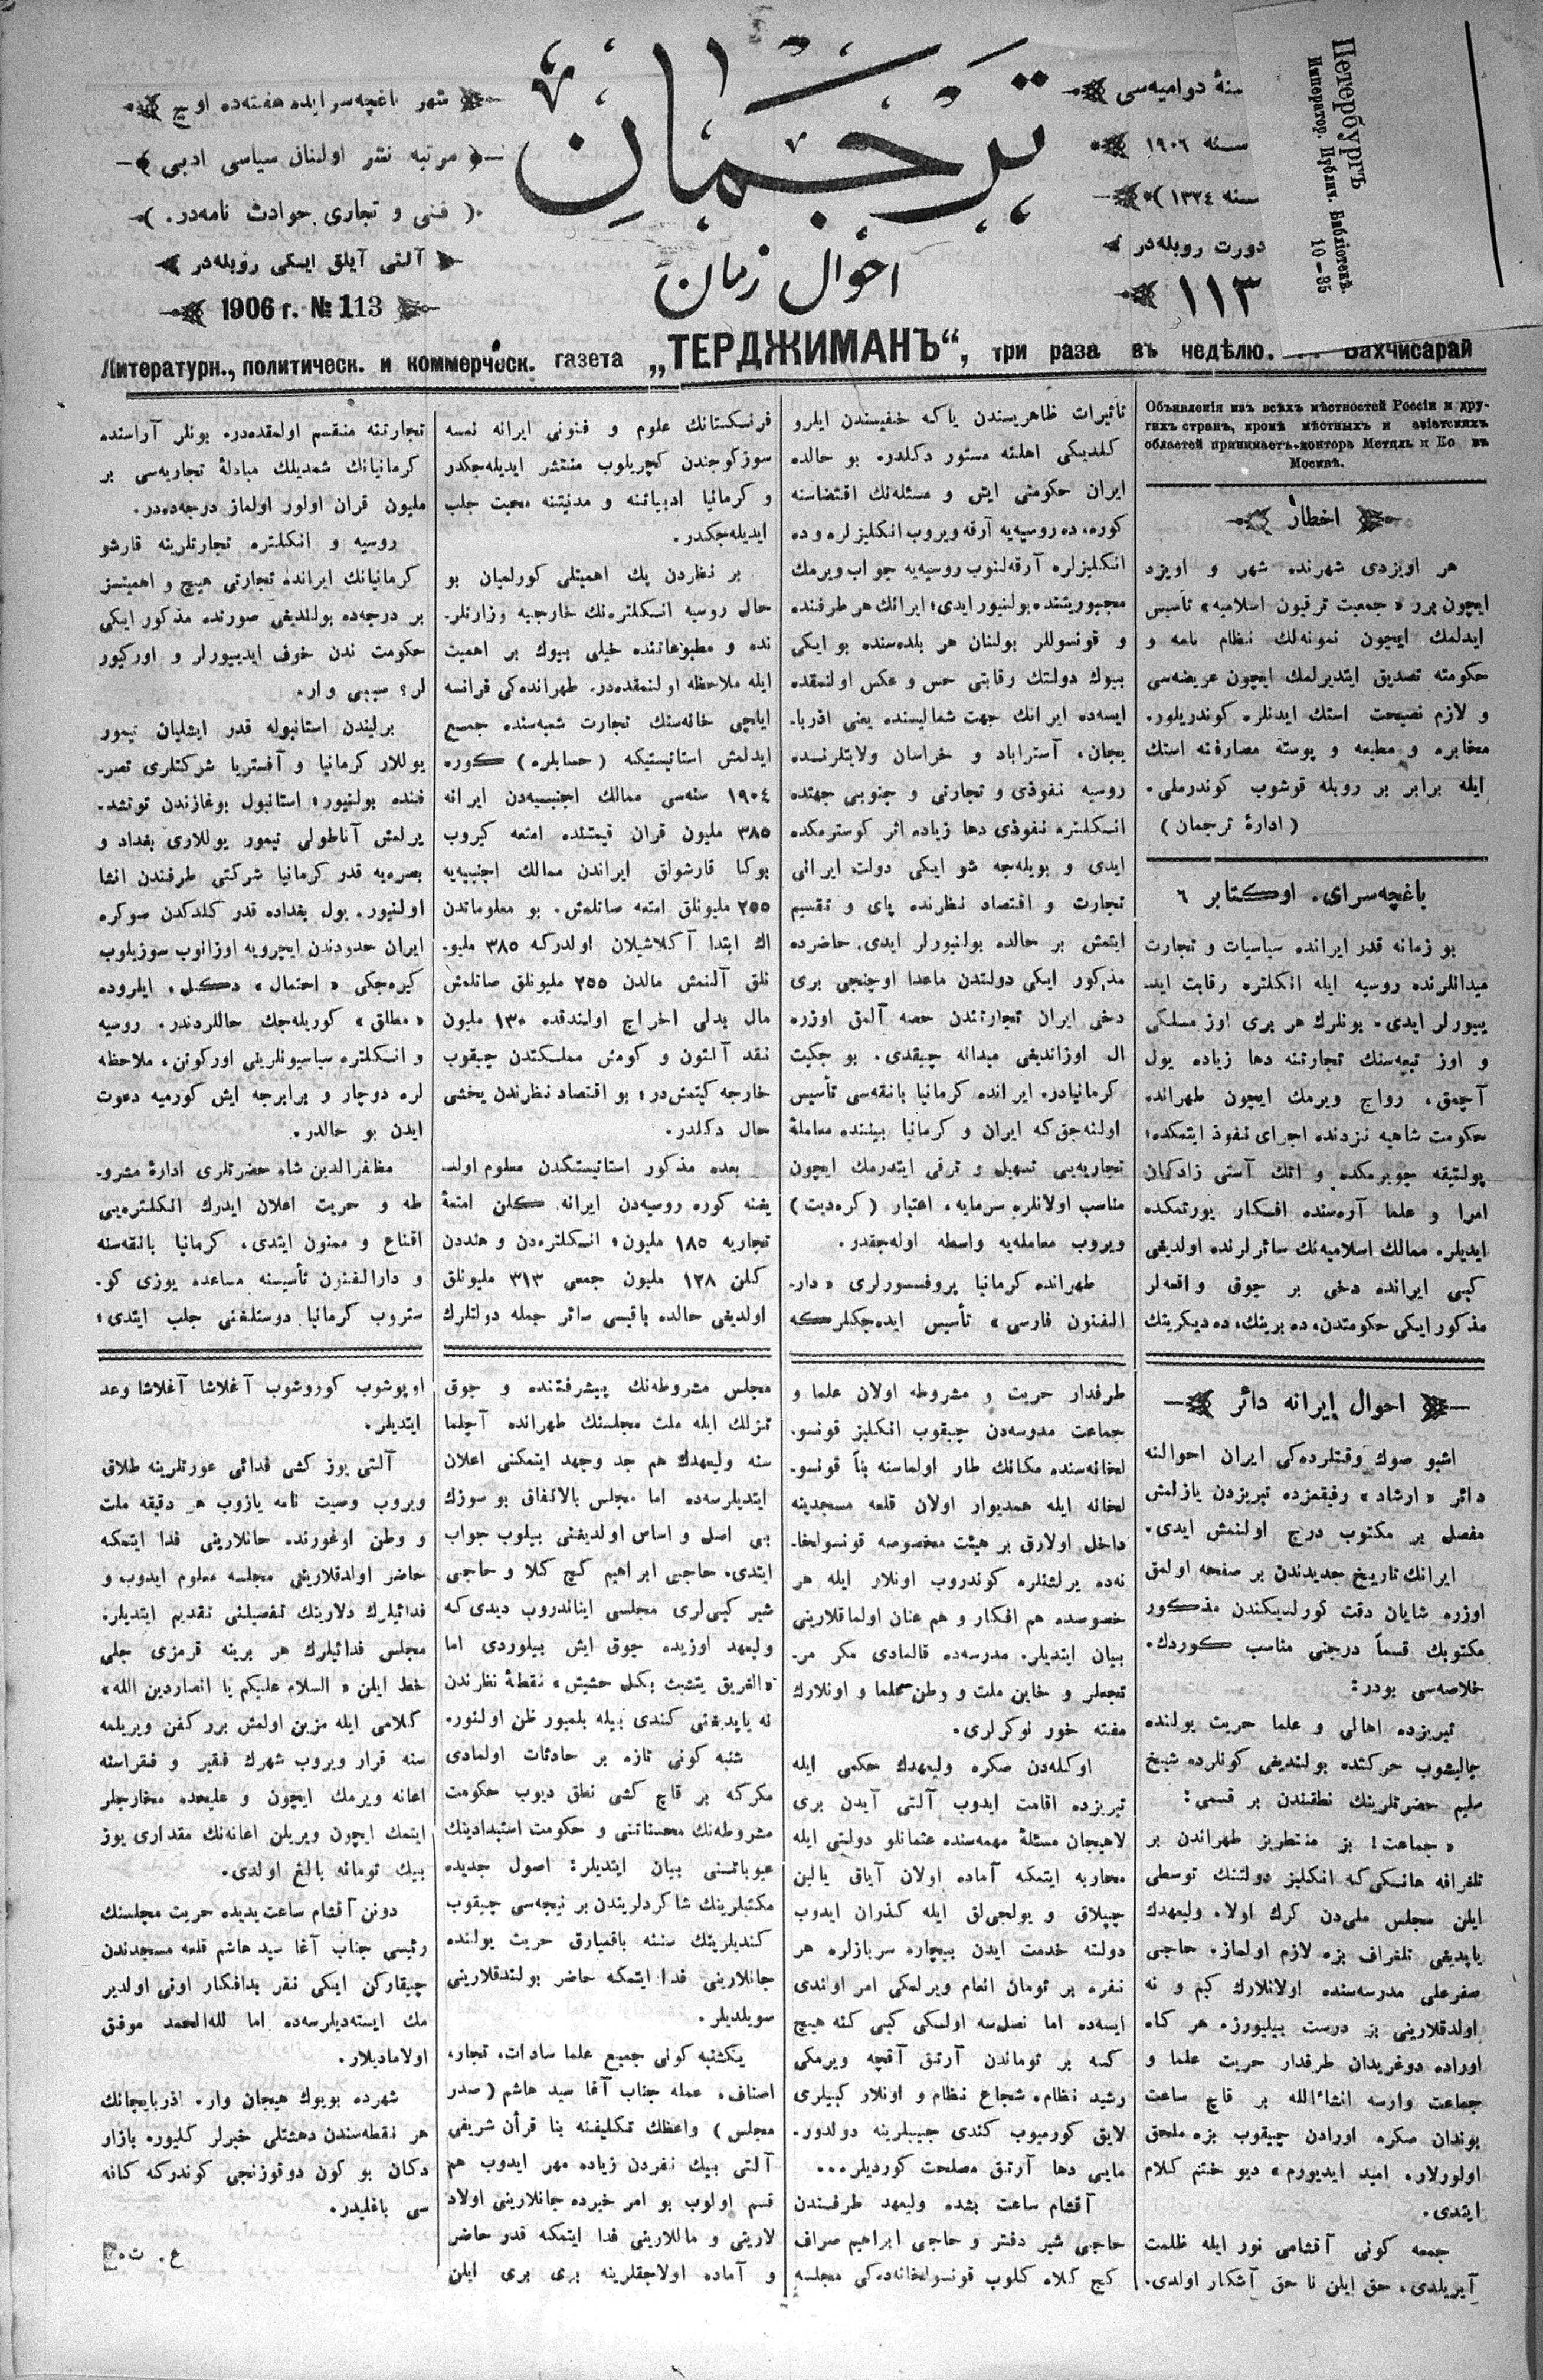 ترجمان
احوال زمان
سنۀ دوامیه‌سی
سنه ١٩٠٦
سنه ١٣٢٤
دورت روبله‌در
١١٣
شهر باغچه‌سرایده هفته‌ده اوچ
مرتبه نشر اولنان سیاسی ادبی
فنی و تجاری حوادث نامه‌در.
آلتی آیلق ایکی روبله‌در
1906 г. № 113
Петербургъ
Император. Публич. Библіотекѣ.
10–35
Литературн., политическ. и коммерческ. газета „ТЕРДЖИМАНЪ“, три раза въ недѣлю. Бахчисарай
Объявленія изъ всѣхъ мѣстностей Россіи и дру-
гихъ странъ, кромѣ мѣстныхъ и азіатскихъ
областей принимаетъ контора Метцль и Ко въ
Москвѣ.
اخطار
هر اویزدی شهرنده شهر و اویزد
ایچون برر « جمعیت ترقیون اسلامیه » تأسیس
ایدلمك ایچون نمونه‌لك نظام نامه و
حکومته تصدیق ایتدیرلمك ایچون عریضه‌سی
و لازم نصیحت استك ایدنلره کوندریلور.
مخابره و مطبعه و پوسته مصارفنه استك
ایله برابر بر روبله قوشوب کوندرملی.
( ادارۀ ترجمان )
باغچه‌سرای. اوکتابر ٦
بو زمانه قدر ایرانده سیاسیات و تجارت
میدانلرنده روسیه ایله انکلتره رقابت اید-
ییورلر ایدی. بونلرك هر بری اوز مسلکی
و اوز تبعه‌سنك تجارتنه دها زیاده یول
آچمق، رواج ویرمك ایچون طهرانده
حکومت شاهیه نزدنده اجرای نفوذ ایتمکده؛
پولتیقه چویرمکده و انك آستی زادکان
امرا و علما آره‌سنده افکار یورتمکده
ایدیلر. ممالك اسلامیه‌نك سائرلرنده اولدیغی
کبی ایرانده دخی بر چوق واقعه‌لر
مذکور ایکی حکومتدن، ده برینك، ده دیکرینك
تاثیرات ظاهریسندن یاکه خفیسندن ایلرو
کلدیکی اهلنه مستور دکلدره بو حالده
ایران حکومتی ایش و مسئله‌نك اقتضاسنه
کوره، ده روسیه‌یه آرقه ویروب انکلیزلره و ده
انکلیزلره آرقه‌لنوب روسیه‌یه جواب ویرمك
مجبوریتنده بولنیور ایدی؛ ایرانك هر طرفنده
و قونسوللر بولنان هر بلده‌سنده بو ایکی
بیوك دولتك رقابتی حس و عکس اولنمقده
ایسه‌ده ایرانك جهت شمالیسنده یعنی اذربا-
یجان، آستراباد و خراسان ولایتلرنده
روسیه نفوذی و تجارتی و جنوبی جهتده
انکلتره نفوذی دها زیاده اثر کوسترمکده
ایدی و بویله‌جه شو ایکی دولت ایرانی
تجارت و اقتصاد نظرنده پای و تقسیم
ایتمش بر حالده بولنیورلر ایدی. حاضرده
مذکور ایکی دولتدن ماعدا اوچنجی بری
دخی ایران تجارتندن حصه آلمق اوزره
ال اوزاندیغی میدانه چیقدی. بو جکیت
کرمانیادر. ایرانده کرمانیا بانقه‌سی تأسیس
اولنه‌جق که ایران و کرمانیا بیننده معاملۀ
تجاریه‌یی تسهیل و ترقی ایتدرمك ایچون
مناسب اولانلره سرمایه، اعتبار (کره‌دیت)
ویروب معامله‌یه واسطه اوله‌جقدر.
طهرانده کرمانیا پروفسسورلری « دار-
الفنون فارسی » تأسیس ایده‌جکلرکه
فرنکستانك علوم و فنونی ایرانه نمسه
سوزکوجندن کچریلوب منتشر ایدیله‌جکدر
و کرمانیا ادبیاتنه و مدنیتنه محبت جلب
ایدیله‌جکدر.
بر نظردن پك اهمیتلی کورلمیان بو
حال روسیه انکلتره‌نك خارجیه وزارتلر-
نده و مطبوعاتنده خیلی بیوك بر اهمیت
ایله ملاحظه اولنمقده‌در. طهرانده‌کی فرانسه
ایلچی خانه‌سنك تجارت شعبه‌سنده جمع
ایدلمش استاتیستیکه (حسابلره) کوره
١٩٠٤ سنه‌سی ممالك اجنبیه‌دن ایرانه
٣٨٥ ملیون قران قیمتنده امتعه کیروب
بوکا قارشولق ایراندن ممالك اجنبیه‌یه
٢٥٥ ملیونلق امتعه صاتلمش. بو معلوماتدن
اك ابتدا آکلاشیلان اولدرکه ٣٨٥ ملیو-
نلق آلنمش مالدن ٢٥٥ ملیونلق صاتلمش
مال بدلی اخراج اولندقده ١٣٠ ملیون
نقد آلتون و کومش مملکتدن چیقوب
خارجه کیتمش‌در؛ بو اقتصاد نظرندن یخشی
حال دکلدر.
بعده مذکور استاتیستکدن معلوم اولد-
یغنه کوره روسیه‌دن ایرانه کلن امتعۀ
تجاریه ١٨٥ ملیون؛ انکلتره‌دن و هنددن
کلن ١٢٨ ملیون جمعی ٣١٣ ملیونلق
اولدیغی حالده باقیسی سائر جمله دولتلرك
تجارتنه منقسم اولمقده‌دره بونلر آراسنده
کرمانیانك شمدیلك مبادلۀ تجاریه‌سی بر
ملیون قران اولور اولماز درجه‌ده‌در.
روسیه و انکلتره تجارتلرینه قارشو
کرمانیانك ایرانده تجارتی هیچ و اهمیتسز
بر درجه‌ده بولندیغی صورتده مذکور ایکی
حکومت ندن خوف ایدییورلر و اورکیور
لر؟ سببی وار.
برلیندن استانبوله قدر ایشلیان تیمور
یوللار کرمانیا و آفستریا شرکتلری تصر-
فنده بولنیور؛ استانبول بوغازندن توتشد-
یرلمش آناطولی تیمور یوللاری بغداد و
بصره‌یه قدر کرمانیا شرکتی طرفندن انشا
اولنیور. یول بغداده قدر کلدکدن صوکره
ایران حدودندن ایچرویه اوزانوب سوزیلوب
کیره‌جکی « احتمال » دکل، ایلروده
« مطلق » کوریله‌جك حاللردندر. روسیه
و انکلتره سیاسیونلرینی اورکوتن، ملاحظه
لره دوچار و برابرجه ایش کورمیه دعوت
ایدن بو حالدر.
مظفرالدین شاه حضرتلری ادارۀ مشرو-
طه و حریت اعلان ایدرك انکلتره‌یی
اقناع و ممنون ایتدی. کرمانیا بانقه‌سنه
و دارالفنون تأسیسنه مساعده یوزی کو-
ستروب کرمانیا دوستلغنی جلب ایتدی؛
احوال ایرانه دائر
اشبو صوك وقتلرده‌کی ایران احوالنه
دائر « ارشاد » رفیقمزده تبریزدن یازلمش
مفصل بر مکتوب درج اولنمش ایدی.
ایرانك تاریخ جدیدندن بر صفحه اولمق
اوزره شایان دقت کورلدیکندن مذکور
مکتوبك قسماً درجنی مناسب کوردك.
خلاصه‌سی بودر:
تبریزده اهالی و علما حریت یولنده
چالیشوب حرکتده بولندیغی کونلرده شیخ
سلیم حضرتلرینك نطقندن بر قسمی:
« جماعت! بز منتظریز طهراندن بر
تلغرافه هانکی که انکلیز دولتنك توسطی
ایلن مجلس ملی‌دن کرك اولا. ولیعهدك
یاپدیغی تلغراف بزه لازم اولماز. حاجی
صفرعلی مدرسه‌سنده اولانلارك کیم و نه
اولدقلارینی بز درست بیلیورز. هر کاه
اوراده دوغریدان طرفدار حریت علما و
جماعت وارسه انشاءالله بر قاچ ساعت
بوندان صکره اورادن چیقوب بزه ملحق
اولورلار. امید ایدیورم » دیو ختم کلام
ایتدی.
جمعه کونی آقشامی نور ایله ظلمت
آیریلدی، حق ایلن نا حق آشکار اولدی.
طرفدار حریت و مشروطه اولان علما و
جماعت مدرسه‌دن چیقوب انکلیز قونسو-
لخانه‌سنده مکانك طار اولماسنه بناً قونسو-
لخانه ایله همدیوار اولان قلعه مسجدینه
داخل اولارق بر هیئت مخصوصه قونسولخا-
نه‌ده یرلشنلره کوندروب اونلار ایله هر
خصوصده هم افکار و هم عنان اولماقلارینی
بیان ایتدیلر. مدرسه‌ده قالمادی مکر مر-
تجعلر و خاین ملت و وطن سحلما و اونلارك
مفته خور نوکرلری.
اوکله‌دن صکره ولیعهدك حکمی ایله
تبریزده اقامت ایدوب آلتی آیدن بری
لاهیجان مسئلۀ مهمه‌سنده عثمانلو دولتی ایله
محاربه ایتمکه آماده اولان آیاق یالین
چیپلاق و یولجی‌لق ایله کذران ایدوب
دولته خدمت ایدن بیچاره سربازلره هر
نفره بر تومان انعام ویرلمکی امر اوندی
ایسه‌ده اما نصل‌سه اولکی کبی کنه هیچ
کسه بر توماندن آرتق آقچه ویرمکی
رشید نظام، شجاع نظام و اونلار کیپلری
لایق کورمیوب کندی جیبلرینه دولدور-
مایی دها آرتق مصلحت کوردیلر...
آقشام ساعت بشده ولیعهد طرفندن
حاجی شیر دفتر و حاجی ابراهیم صراف
کج کلاه کلوب قونسولخانه‌ده‌کی مجلسه
مجلس مشروطه‌نك پیشرفتنده و چوق
تزلك ایله ملت مجلسنك طهرانده آچلما
سنه ولیعهدك هم جد وجهد ایتمکنی اعلان
ایتدیلرسه‌ده اما مجلس بالاتفاق بو سوزك
بی اصل و اساس اولدیغنی بیلوب جواب
ایتدی. حاجی ابراهیم کج کلا و حاجی
شیر کبی‌لری مجلسی ایناندروب دیدی که
ولیعهد اوزیده چوق ایش بیلوردی اما
« الغریق یتشبث بکل حشیش » نقطۀ نظرندن
نه یاپدیغنی کندی بیله بلمیور ظن اولنور.
شنبه کونی تازه بر حادثات اولمادی
مکرکه بر قاچ کشی نطق دیوب حکومت
مشروطه‌نك محسناتنی و حکومت استبدادینك
عیوباتنی بیان ایتدیلر: اصول جدیده
مکتبلرینك شاکردلریندن بر نیجه‌سی چیقوب
کندیلرینك سننه باقمیارق حریت یولنده
جانلارینی فدا ایتمکه حاضر بولندقلارینی
سویلدیلر.
یکشنبه کونی جمیع علما سادات، تجار،
اصناف، عمله جناب آغا سید هاشم (صدر
مجلس) واعظك تکلیفنه بنا قرآن شریفی
آلتی بیك نفردن زیاده مهر ایدوب هم
قسم اولوب بو امر خیرده جانلارینی اولاد
لارینی و ماللارینی فدا ایتمکه قدر حاضر
و آماده اولاجقلرینه بری بری ایلن
اوپوشوب کوروشوب آغلاشا آغلاشا وعد
ایتدیلر.
آلتی یوز کشی فدائی عورتلرینه طلاق
ویروب وصیت نامه یازوب هر دقیقه ملت
و وطن اوغورنده جانلارینی فدا ایتمکه
حاضر اولدقلارینی مجلسه معلوم ایدوب و
فدائیلرك دلارینك تفصیلنی تقدیم ایتدیلر.
مجلس فدائیلرك هر برینه قرمزی جلی
خط ایلن « السلام علیکم یا انصاردین الله »
کلامی ایله مزین اولمش برر کفن ویریلمه
سنه قرار ویروب شهرك فقیر و فقراسنه
اعانه ویرمك ایچون و علیحده مخارجلر
ایتمك ایچون ویریلن اعانه‌نك مقداری یوز
بیك تومانه بالغ اولدی.
دونن آقشام ساعت یدیده حریت مجلسنك
رئیسی جناب آغا سید هاشم قلعه مسجدندن
چیقارکن ایکی نفر بدافکار اونی اولدیر
مك ایسته‌دیلرسه‌ده اما لله‌الحمد موفق
اولامادیلار.
شهرده بویوك هیجان وار. اذربایجانك
هر نقطه‌سندن دهشتلی خبرلر کلیور. بازار
دکان بو کون دوقوزنجی کوندرکه کافه
سی باغلیدر.
ع. ت.